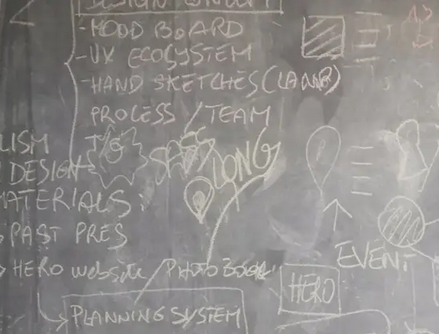 DESIGN CONCEPT
-MOOD BOARD
-UX ECOSYSTEM
-HAND SKETCHES
PROCESS / TEAM
LISM
DESIGN
LONG
MATERIALS
PAST PRES
EVENT
HERO website / PHOTO BOOK
HERO
PLANNING SYSTEM